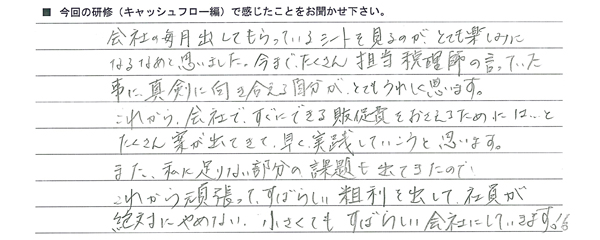 ■ 今回の研修（キャッシュフロー編）で感じたことをお聞かせ下さい。
会社の毎月出してもらっているシートを見るのが、とても楽しみに
なるなあと思いました。今まで、たくさん担当税理師の言っていた
事に、真剣に向き合える自分が、とてもうれしく思います。
これから、会社で、すぐにできる販促費をおさえるためには…と
たくさん案が出てきて、早く実践していこうと思います。
また、私に足りない部分の課題も出てきたので、
これから頑張って、すばらしい粗利を出して、社員が
絶対にやめない、小さくてもすばらしい会社にしていきます。!!